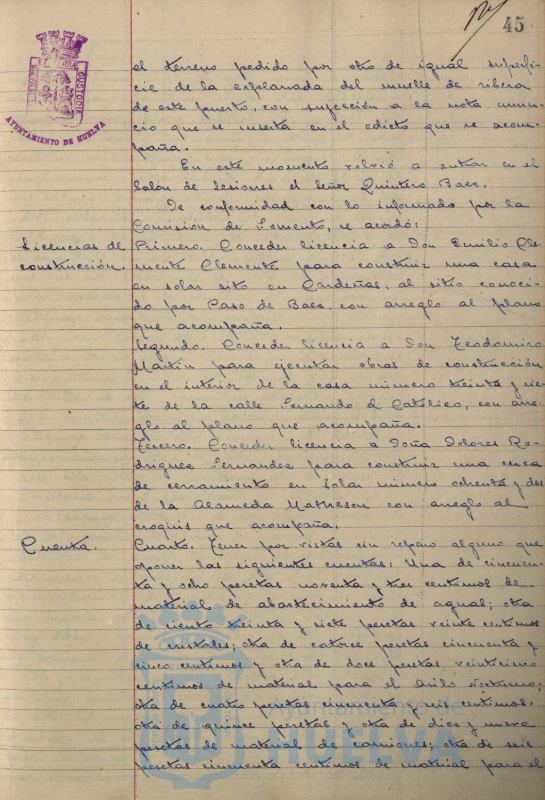 45
el terreno pedido por otro de igual superfi-
cie de la explanada del muelle de ribera
de este puerto, con sujeción a la nota anun-
cio que se inserta en el edicto que se acom-
paña.
En este momento volvió a entrar en el
Salón de Sesiones el Señor Quintero Baez.
De conformidad con lo informado por la
Comisión de Fomento, se acordó:
Licencias de
construcción.
Primero. Conceder licencia a Don Emilio Cle-
mente Clemente para construir una casa
en solar sito en Cardeñas, al sitio conoci-
do por Paso de Baez, con arreglo al plano
que acompaña.
Segundo. Conceder licencia a Don Teodomiro
Martín para ejecutar obras de construcción
en el interior de la casa número treinta y sie-
te de la calle Fernando el Católico, con arre-
glo al plano que acompaña.
Tercero. Conceder licencia a Doña Dolores Ro-
driguez Fernandez para construir una cerca
de cerramiento en solar número ochenta y dos
de la Alameda Matheson con arreglo al
croquis que acompaña.
Cuenta.
Cuarto. Tener por vistas sin reparo alguno que
oponer las siguientes cuentas: Una de cincuen-
ta y ocho pesetas noventa y tres centimos de
material de abastecimiento de aguas; otra
de ciento treinta y siete pesetas veinte centimos
de cristales; otra de catorce pesetas cincuenta y
cinco centimos y otra de doce pesetas veinticinco
centimos de material para el Asilo Nocturno;
otra de cuatro pesetas cincuenta y seis centimos;
otra de quince pesetas y otra de diez y nueve
pesetas de material de camiones; otra de seis
pesetas cincuenta centimos de material para el
AYUNTAMIENTO DE HUELVA
Ayuntamiento de
HUELVA